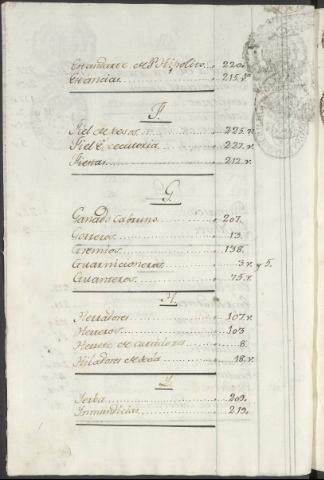 Estandarte de S. Hipolito. 220.
Esencias. 215.v.
F.
Fiel de pesos. 225.v.
Fiel Executoria. 222.v.
Fiestas. 212.v.
G.
Ganado Cabruno. 207.
Gorreros. 13.
Gremios. 138.
Guarnicioneros. 3.v. y 5.
Guanteros. 75.v.
H.
Herradores 107.v.
Herreros. 103
Herreros de cuadrados. 8.
Hiladores de seda. 18.v.
I.
Ierba. 209.
Inmundicias. 219.